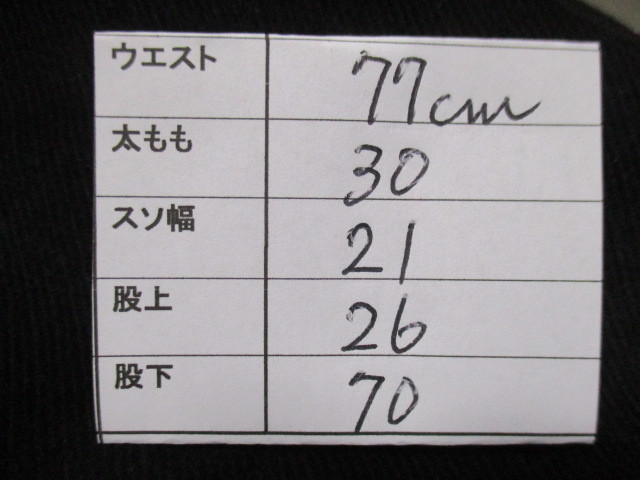 ウエスト 77cm
太もも 30
スソ幅 21
股上 26
股下 70